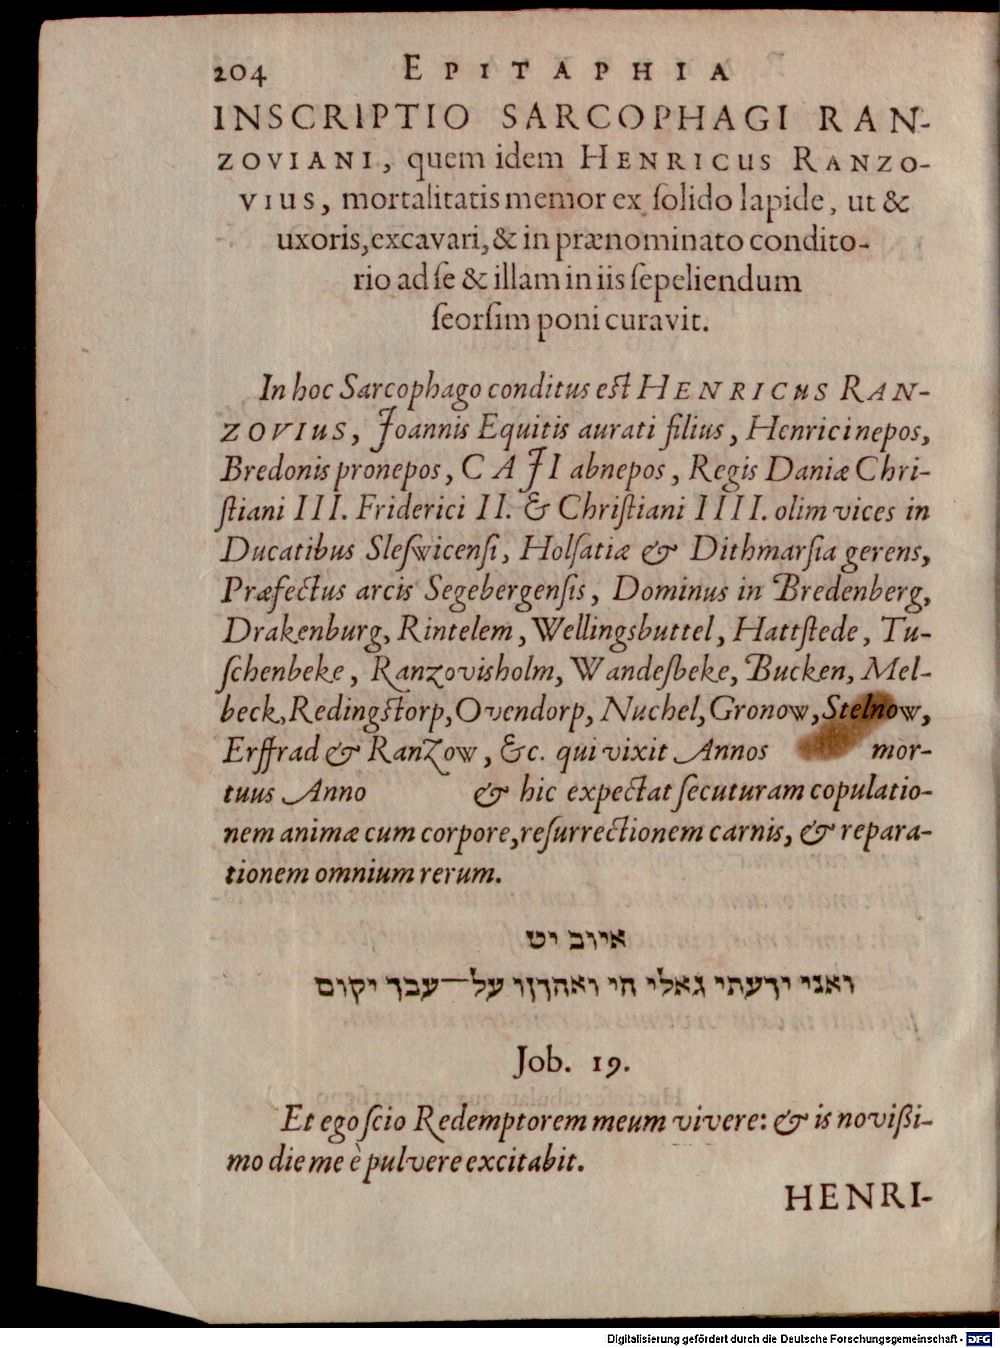 204 EPITAPHIA
INSCRIPTIO SARCOPHAGI RAN-
ZOVIANI, quem idem HENRICUS RANZO-
VIUS, mortalitatis memor ex ſolido lapide, ut &
uxoris, excavari, & in prænominato condito-
rio ad ſe & illam in iis ſepeliendum
ſeorſim poni curavit.
In hoc Sarcophago conditus eſt HENRICUS RAN-
ZOVIUS, Joannis Equitis aurati filius, Henrici nepos,
Bredonis pronepos, CAJI abnepos, Regis Daniæ Chri-
ſtiani III. Friderici II. & Chriſtiani IIII. olim vices in
Ducatibus Sleſwicenſi, Holſatiæ & Dithmarſia gerens,
Præfectus arcis Segebergenſis, Dominus in Bredenberg,
Drakenburg, Rintelem, Wellingsbuttel, Hattſtede, Tu-
ſchenbeke, Ranzovisholm, Wandeſbeke, Bucken, Mel-
beck, Redingſtorp, Ovendorp, Nuchel, Gronow, Stelnow,
Erffrad & Ranzow, &c. qui vixit Annos mor-
tuus Anno & hic expectat ſecuturam copulatio-
nem animæ cum corpore, reſurrectionem carnis, & repara-
tionem omnium rerum.
איוב יט
ואני ידעתי גאלי חי ואהרון על־עבר יקום
Job. 19.
Et ego ſcio Redemptorem meum vivere: & is novißi-
mo die me è pulvere excitabit.
HENRI-
Digitalisierung gefördert durch die Deutsche Forschungsgemeinschaft - DFG